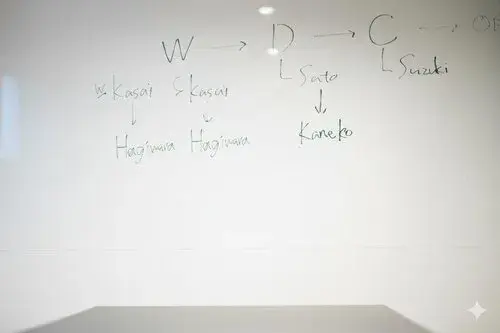 W → D → C →
Sato Suzuki
Kasai Kasai
↓ ↓ ↓
Hagiwara Hagiwara Kaneko